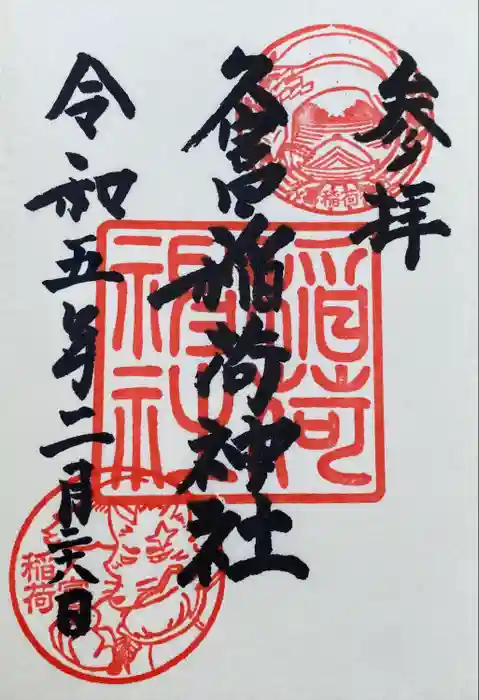 参拝
久宮稲荷神社
令和五年二月二十八日
稲荷
稲荷神社
久宮
稲荷